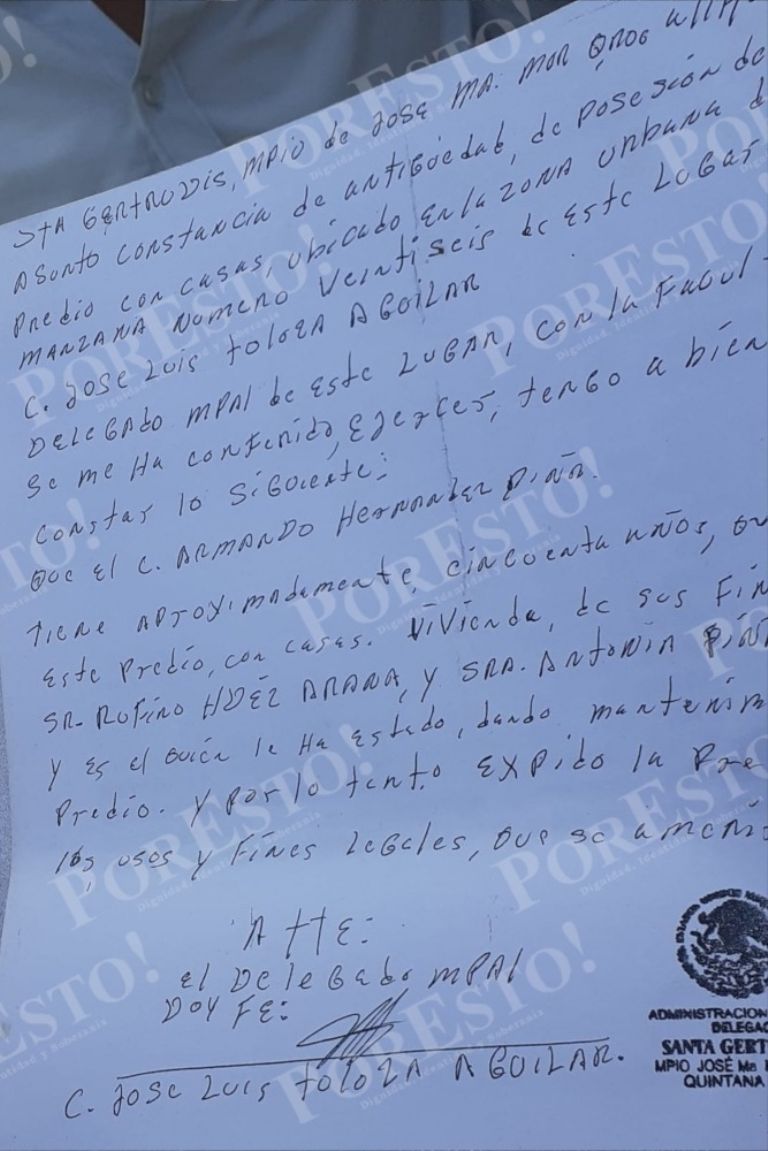 STA GERTRUDIS, MPIO de JOSE MA. MOR QROO a
ASUNTO CONSTANCIA de antigüedad, de POSESIÓN de
Predio con casas, Ubicado en la ZONA Urbana d
MANZANA Numero Veintiseis de Este LUGAR
C. JOSE LUIS TOLOZA AGUILAR
DELEGADO MPAl de Este LUGAR, con la Facul-
Se me Ha conferido, Ejercer, tengo a bien
Constar lo Siguiente:
QUE El C. ARMANDO Hernandez Piña.
TIENE Aproximadamente, cincuenta años,
Este Predio, con casas. Vivienda, de sus Fin
SR. RUFINO HDEZ ARANA, y SRA. Antonia PIÑ
y es el quién le Ha Estado, dando mantenim
Predio. y Por lo tanto EXPIDO la Pre
los, usos y Fines Legales, que se ameri
Atte:
El Delegado MPAl
DOY FE:
C. JOSE LUIS TOLOZA AGUILAR.
ADMINISTRACION
DELEGAC
SANTA GERT
MPIO JOSÉ Ma
QUINTANA
PORESTO!
Dignidad, Identidad y Soberanía